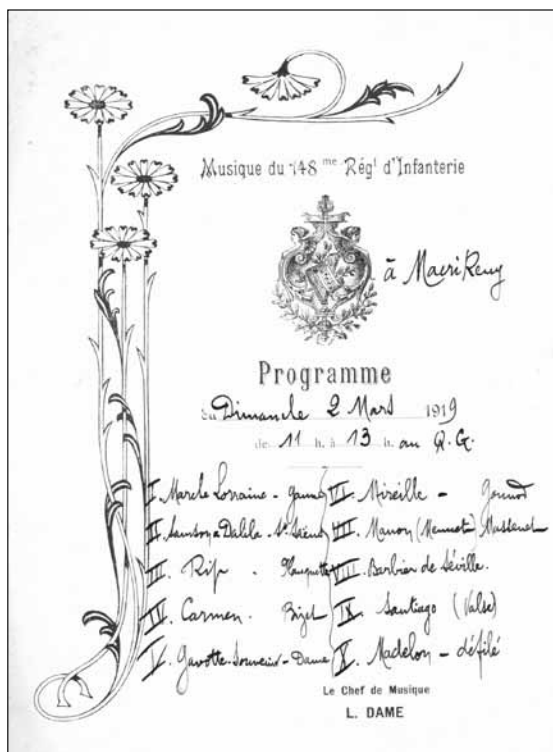 Musique du 148me Régt d'Infanterie
à Macrikeuy
Programme
du Dimanche 2 Mars 1919
de 11 h. à 13 h. au Q. G.
I. Marche Lorraine - Ganne
II. Samson & Dalila - St Saëns
III. Rip - Planquette
IV. Carmen - Bizet
V. Gavotte-Souvenir - Dame
VI. Mireille - Gounod
VII. Manon (Menuet) Massenet
VIII. Barbier de Séville.
IX. Santiago (Valse)
X. Madelon - défilé
Le Chef de Musique
L. DAME